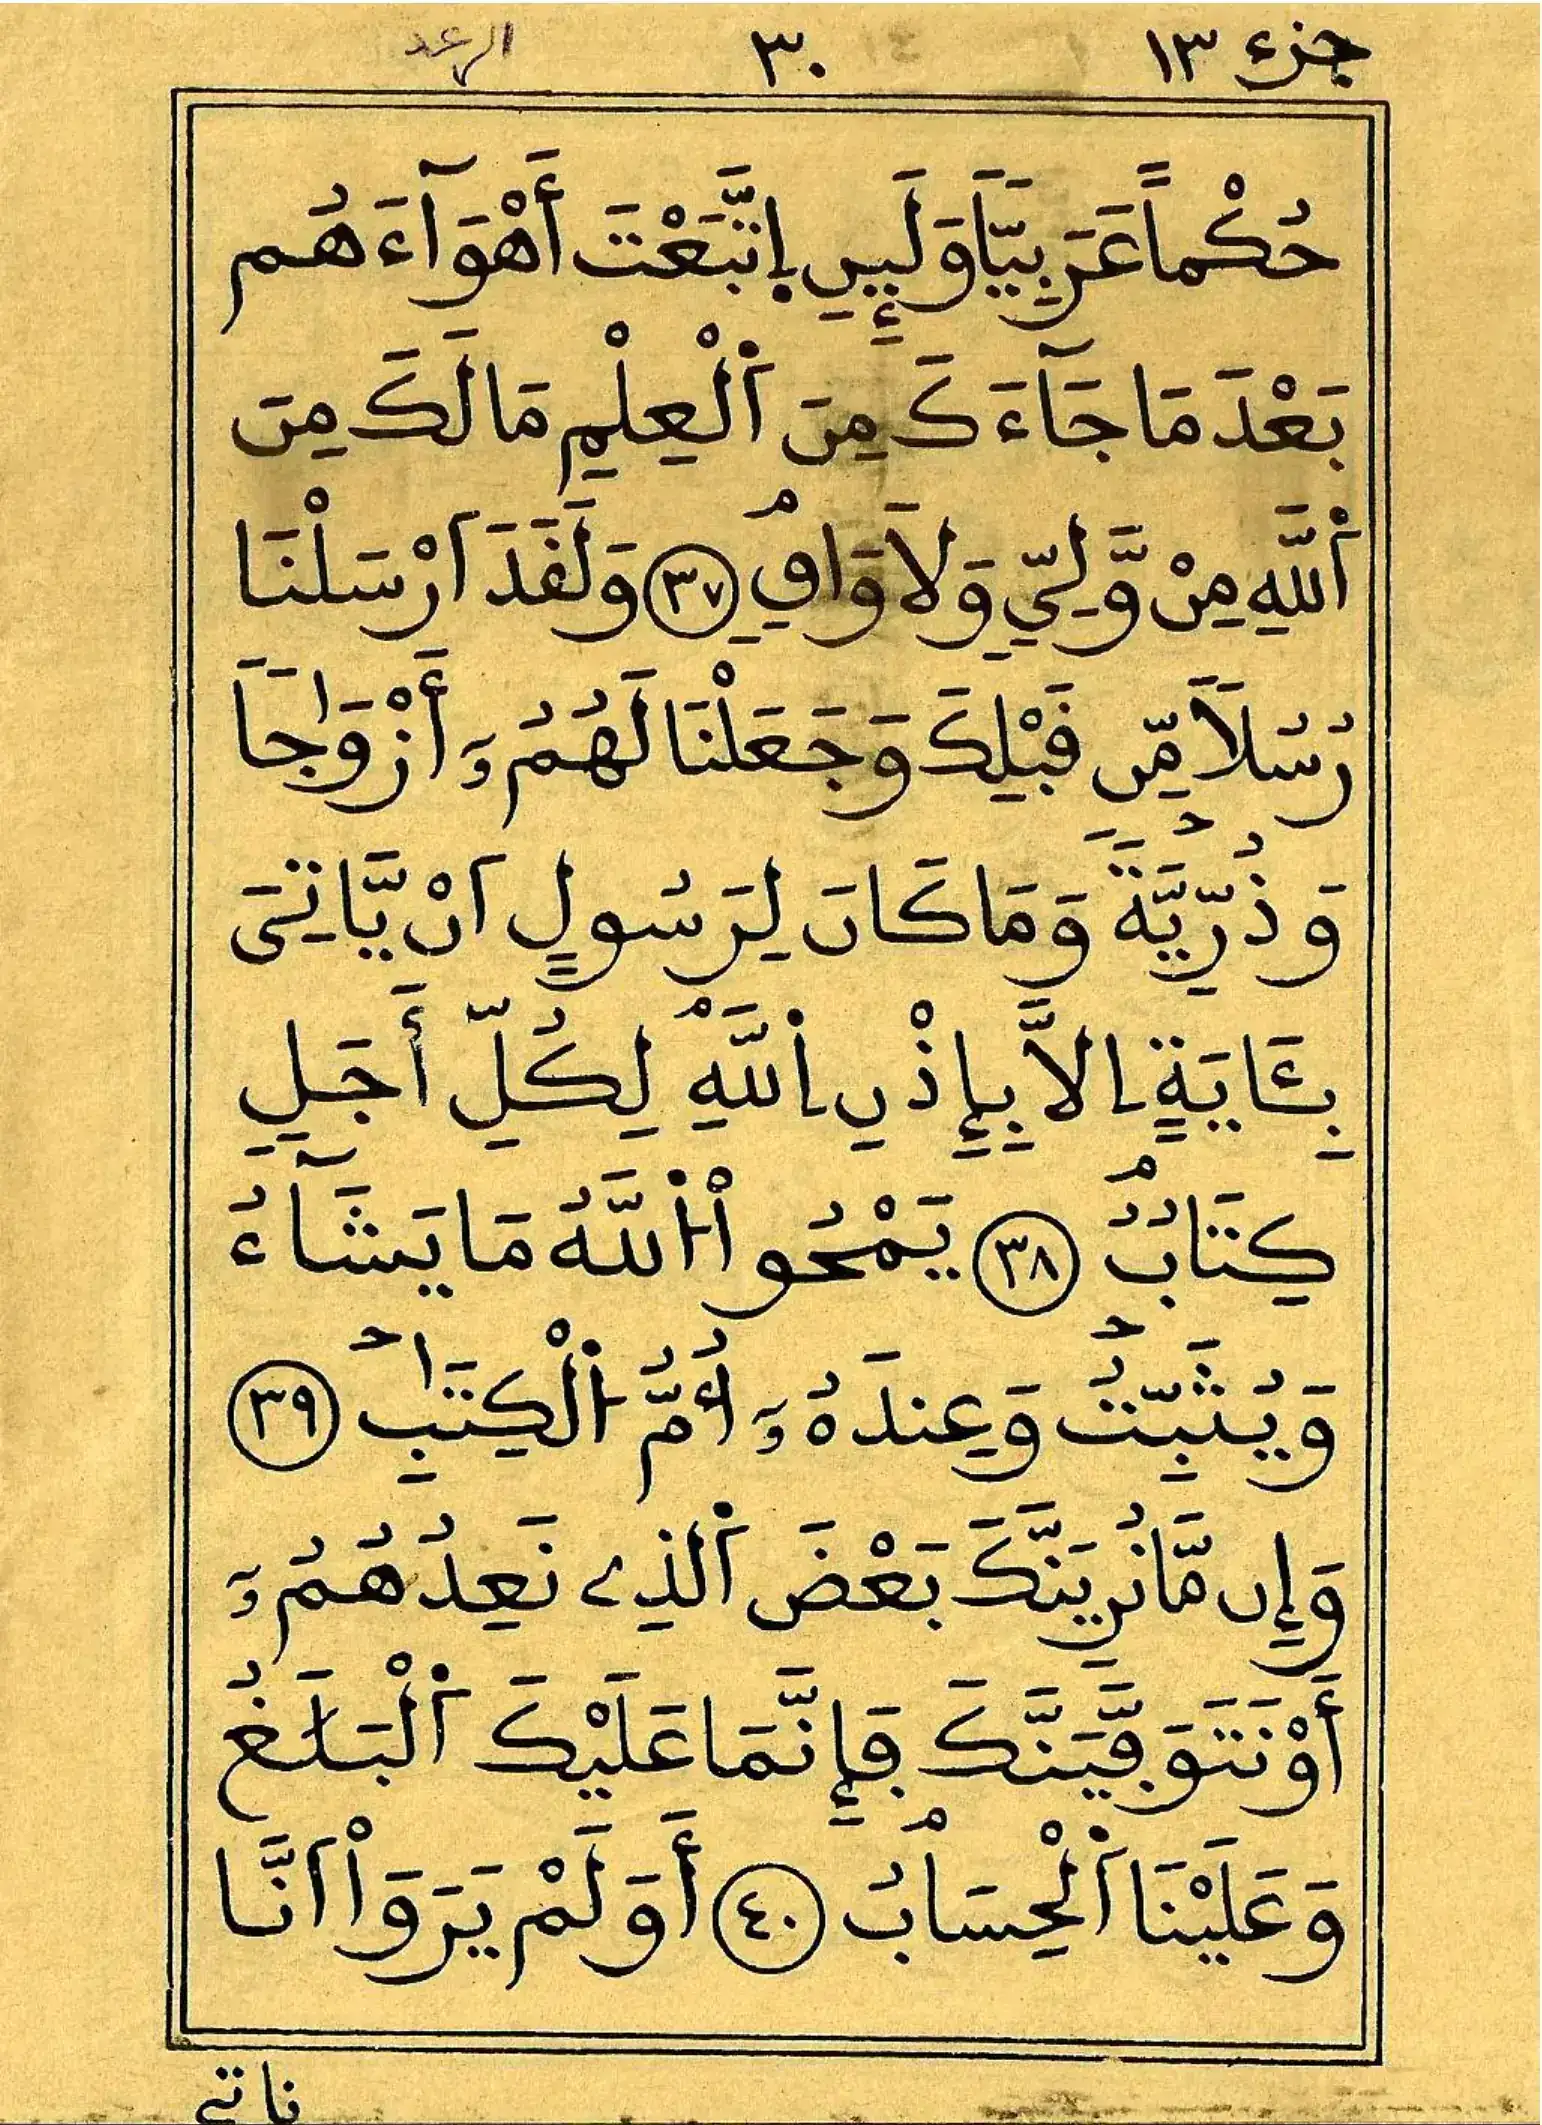 جزء ١٣ ٣٠ الرعد
حُكْماً عَرَبِيّاً وَلَئِنِ اِتَّبَعْتَ أَهْوَآءَهُم
بَعْدَ مَا جَآءَكَ مِنَ اَ۬لْعِلْمِ مَا لَكَ مِنَ
اَ۬للَّهِ مِنْ وَّلِيّٖ وَلَا وَاقٖۖ ٣٧ وَلَقَدَ اَرْسَلْنَا
رُسُلاً مِّن قَبْلِكَ وَجَعَلْنَا لَهُمُۥٓ أَزْوَٰجاً
وَذُرِّيَّةً وَمَا كَانَ لِرَسُولٍ اَنْ يَّاتِىَ
بِـَٔايَةٍ اِلَّا بِإِذْنِ اِ۬للَّهِ لِكُلِّ أَجَلٖ
كِتَابٌ ٣٨ يَمْحُواْ اُ۬للَّهُ مَا يَشَآءُ
وَيُثَبِّتُ وَعِندَهُۥٓ أُمُّ اُ۬لْكِتَٰبِ ٣٩
وَإِن مَّا نُرِيَنَّكَ بَعْضَ اَ۬لذِے نَعِدُهُمُۥٓ
أَوْ نَتَوَفَّيَنَّكَ فَإِنَّمَا عَلَيْكَ اَ۬لْبَلَٰغُ
وَعَلَيْنَا اَ۬لْحِسَابُ ٤٠ أَوَلَمْ يَرَوَاْ اَنَّا
ناتے